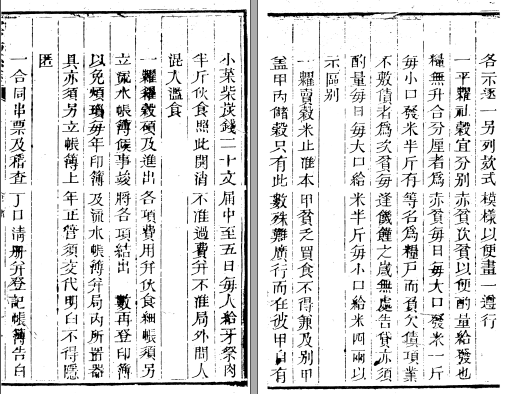 各示逐一另列款式模樣以便畫一遵行
一平糶社穀宜分別赤貧次貧以便酌量給發也
糧無升合分厘者爲赤貧每日每大口發米一斤
每小口發米半斤有等名爲糧戶而負欠債項業
不敷債者爲次貧每逢饑饉之歲無處告貸亦須
酌量每日每大口給米半斤每小口給米四兩以
示區別
一糶賣穀米止准本甲貧乏買食不得兼及別甲
蓋甲内儲穀只有此數殊難廣行而在彼甲自有
小菜柴炭錢二十文屆中至五日每人給牙祭肉
半斤伙食照此開消不准過費并不准局外間人
混入濫食
一糶糴穀碩及進出各項費用并伙食細帳須另
立流水帳簿俟事竣將各項結出 數再登印簿
以免煩瑣每年印簿及流水帳簿并局内所置器
具亦須另立帳簿上年正管須交代明白不得隱
匿
一合同串票及稽查丁口清册并登記帳簿告白